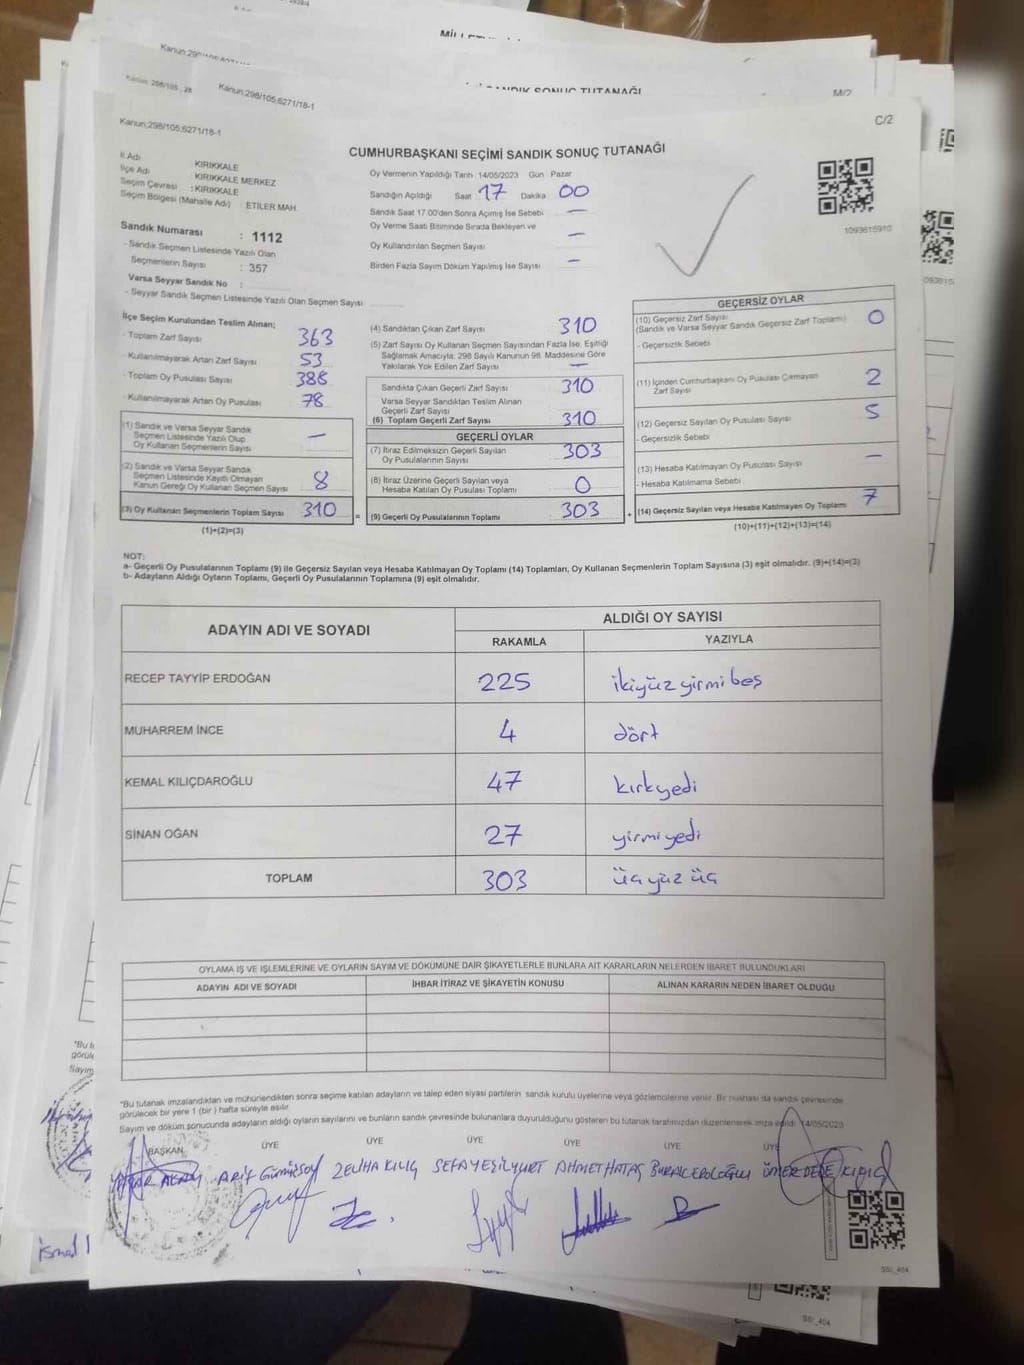 Kanun;298/105;6271/18-1
M/2
Kanun;298/105;6271/18-1
C/2
CUMHURBAŞKANI SEÇİMİ SANDIK SONUÇ TUTANAĞI
İl Adı : KIRIKKALE
İlçe Adı : KIRIKKALE MERKEZ
Seçim Çevresi : KIRIKKALE
Seçim Bölgesi (Mahalle Adı) : ETİLER MAH
Sandık Numarası : 1112
- Sandık Seçmen Listesinde Yazılı Olan
Seçmenlerin Sayısı : 357
Varsa Seyyar Sandık No :
- Seyyar Sandık Seçmen Listesinde Yazılı Olan Seçmen Sayısı
Oy Vermenin Yapıldığı Tarih 14/05/2023 Gün Pazar
Sandığın Açıldığı Saat 17 Dakika 00
Sandık Saat 17.00'den Sonra Açılmış İse Sebebi —
Oy Verme Saati Bitiminde Sırada Bekleyen ve
Oy Kullandırılan Seçmen Sayısı —
Birden Fazla Sayım Döküm Yapılmış İse Sayısı —
1093615910
İlçe Seçim Kurulundan Teslim Alınan;
- Toplam Zarf Sayısı 363
- Kullanılmayarak Artan Zarf Sayısı 53
- Toplam Oy Pusulası Sayısı 388
- Kullanılmayarak Artan Oy Pusulası 78
(1) Sandık ve Varsa Seyyar Sandık
Seçmen Listesinde Yazılı Olup
Oy Kullanan Seçmenlerin Sayısı —
(2) Sandık ve Varsa Seyyar Sandık
Seçmen Listesinde Kayıtlı Olmayan
Kanun Gereği Oy Kullanan Seçmen Sayısı 8
(3) Oy Kullanan Seçmenlerin Toplam Sayısı 310
(1)+(2)=(3)
(4) Sandıktan Çıkan Zarf Sayısı 310
(5) Zarf Sayısı Oy Kullanan Seçmen Sayısından Fazla İse, Eşitliği
Sağlamak Amacıyla, 298 Sayılı Kanunun 98. Maddesine Göre
Yakılarak Yok Edilen Zarf Sayısı —
Sandıkta Çıkan Geçerli Zarf Sayısı 310
Varsa Seyyar Sandıktan Teslim Alınan
Geçerli Zarf Sayısı
(6) Toplam Geçerli Zarf Sayısı 310
GEÇERLİ OYLAR
(7) İtiraz Edilmeksizin Geçerli Sayılan
Oy Pusulalarının Sayısı 303
(8) İtiraz Üzerine Geçerli Sayılan veya
Hesaba Katılan Oy Pusulası Toplamı 0
= (9) Geçerli Oy Pusulalarının Toplamı 303
GEÇERSİZ OYLAR
(10) Geçersiz Zarf Sayısı
(Sandık ve Varsa Seyyar Sandık Geçersiz Zarf Toplamı) 0
- Geçersizlik Sebebi
(11) İçinden Cumhurbaşkanı Oy Pusulası Çıkmayan
Zarf Sayısı 2
(12) Geçersiz Sayılan Oy Pusulası Sayısı 5
- Geçersizlik Sebebi
(13) Hesaba Katılmayan Oy Pusulası Sayısı —
- Hesaba Katılmama Sebebi
+ (14) Geçersiz Sayılan veya Hesaba Katılmayan Oy Toplamı 7
(10)+(11)+(12)+(13)=(14)
NOT:
a- Geçerli Oy Pusulalarının Toplamı (9) ile Geçersiz Sayılan veya Hesaba Katılmayan Oy Toplamı (14) Toplamları, Oy Kullanan Seçmenlerin Toplam Sayısına (3) eşit olmalıdır. (9)+(14)=(3)
b- Adayların Aldığı Oyların Toplamı, Geçerli Oy Pusulalarının Toplamına (9) eşit olmalıdır.
ADAYIN ADI VE SOYADI
ALDIĞI OY SAYISI
RAKAMLA YAZIYLA
RECEP TAYYİP ERDOĞAN 225 ikiyüzyirmibeş
MUHARREM İNCE 4 dört
KEMAL KILIÇDAROĞLU 47 kırkyedi
SİNAN OĞAN 27 yirmiyedi
TOPLAM 303 üçyüzüç
OYLAMA İŞ VE İŞLEMLERİNE VE OYLARIN SAYIM VE DÖKÜMÜNE DAİR ŞİKAYETLERLE BUNLARA AİT KARARLARIN NELERDEN İBARET BULUNDUKLARI
ADAYIN ADI VE SOYADI İHBAR İTİRAZ VE ŞİKAYETİN KONUSU ALINAN KARARIN NEDEN İBARET OLDUĞU
*Bu tutanak imzalandıktan ve mühürlendikten sonra seçime katılan adayların ve talep eden siyasi partilerin sandık kurulu üyelerine veya gözlemcilerine verilir. Bir nüshası da sandık çevresinde
görülecek bir yere 1 (bir) hafta süreyle asılır.
Sayım ve döküm sonucunda adayların aldığı oyların sayılarını ve bunların sandık çevresinde bulunanlara duyurulduğunu gösteren bu tutanak tarafımızdan düzenlenerek imza edildi. 14/05/2023
BAŞKAN ÜYE ÜYE ÜYE ÜYE ÜYE ÜYE
ARİF GÜMÜŞSOY ZELİHA KILIÇ SEFA YEŞİLYURT AHMET HATAŞ BURAK EROĞLU ÖMER DEDE KILIÇ
SSI_404
SSI_404